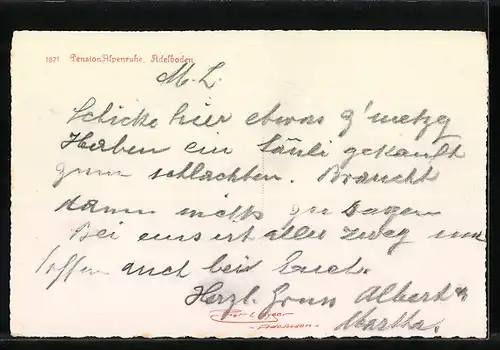 1871 Pension Alpenruhe, Adelboden
M. L.
Schicke hier etwas g'metzg
Haben ein Säuli gekauft
zum schlachten. Braucht
dann nichts zu sagen
Bei uns ist alles zweg und
hoffen auch bei Euch.
Herzl. Gruss Albert &
Martha.
Adelboden